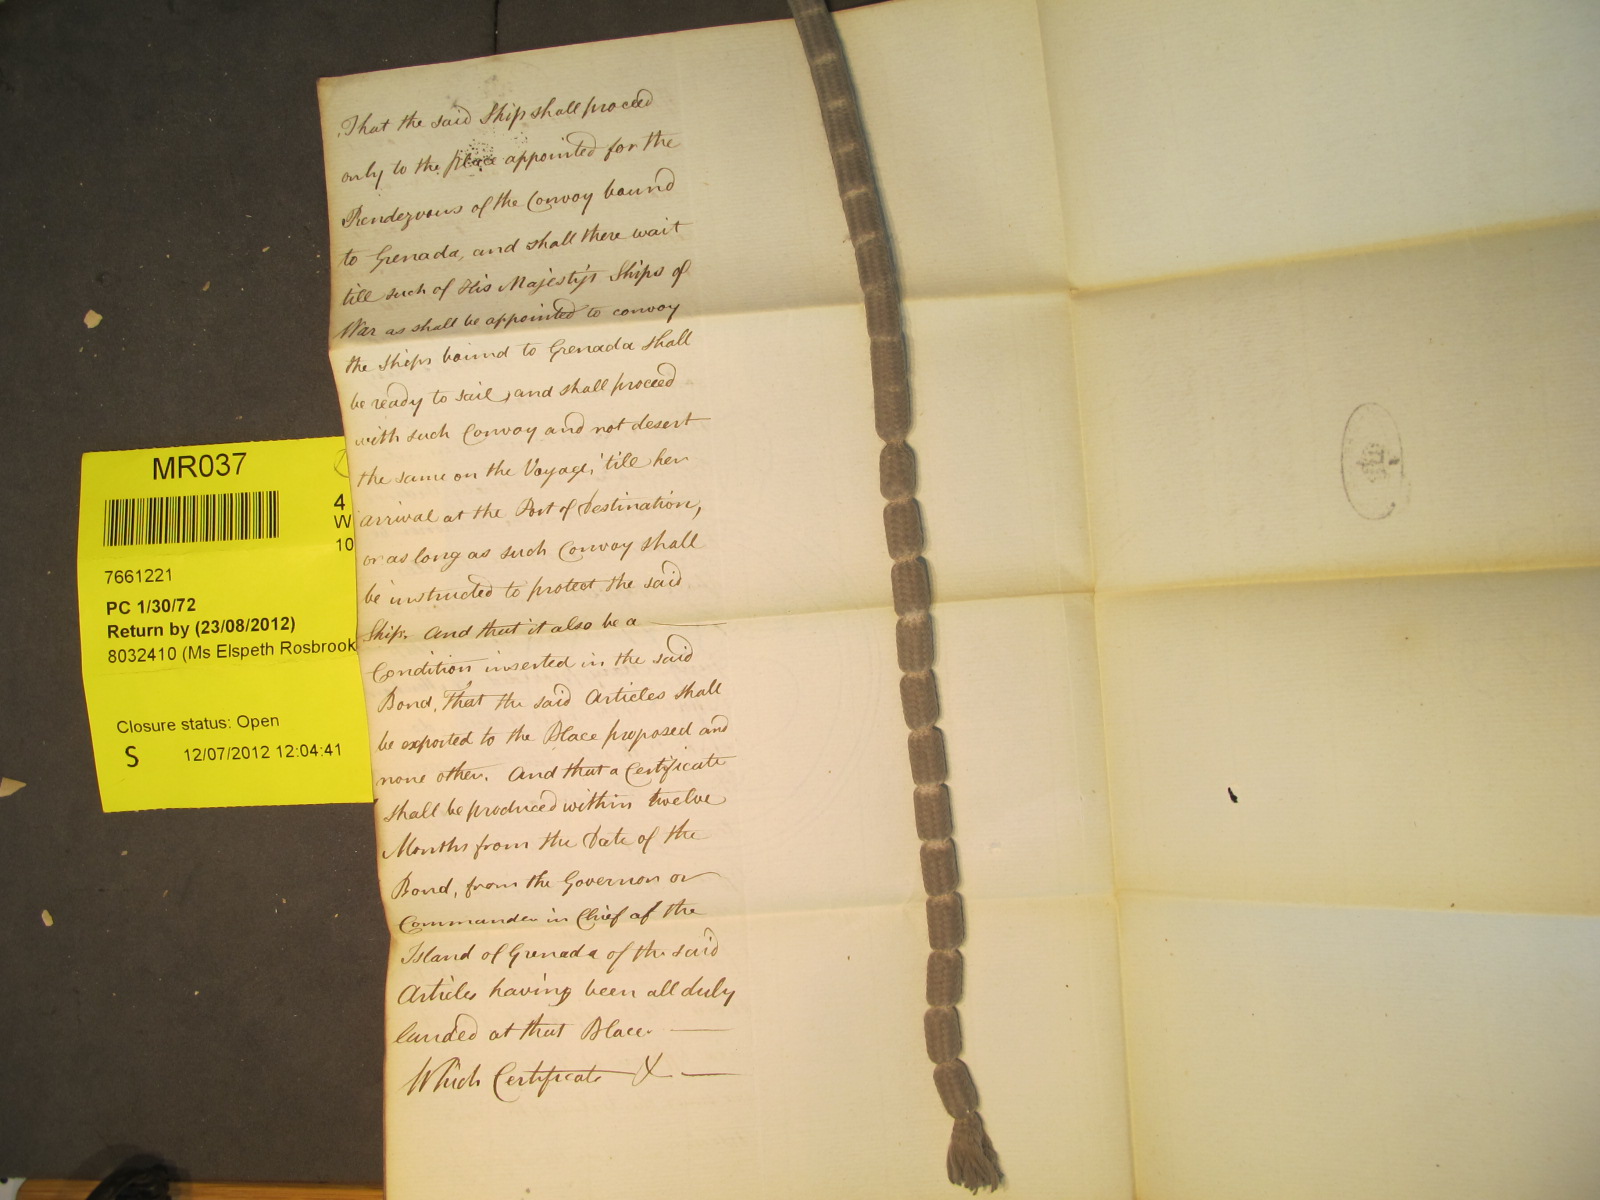 That the said Ship shall proceed
only to the place appointed for the
Rendezvous of the Convoy bound
to Grenada, and shall there wait
till such of His Majesty's Ships of
War as shall be appointed to convoy
the Ships bound to Grenada shall
be ready to sail, and shall proceed
with such Convoy and not desert
the same on the Voyage, 'till her
arrival at the Port of Destination,
or as long as such Convoy shall
be instructed to protect the said
Ship. And that it also be a
Condition inserted in the said
Bond, That the said Articles shall
be exported to the Place proposed and
none other. And that a Certificate
shall be produced within twelve
Months from the Date of the
Bond, from the Governor or
Commander in Chief of the
Island of Grenada of the said
Articles having been all duly
landed at that Place.
Which Certificate &
MR037
4
W
10
7661221
PC 1/30/72
Return by (23/08/2012)
8032410 (Ms Elspeth Rosbrook
Closure status: Open
S 12/07/2012 12:04:41